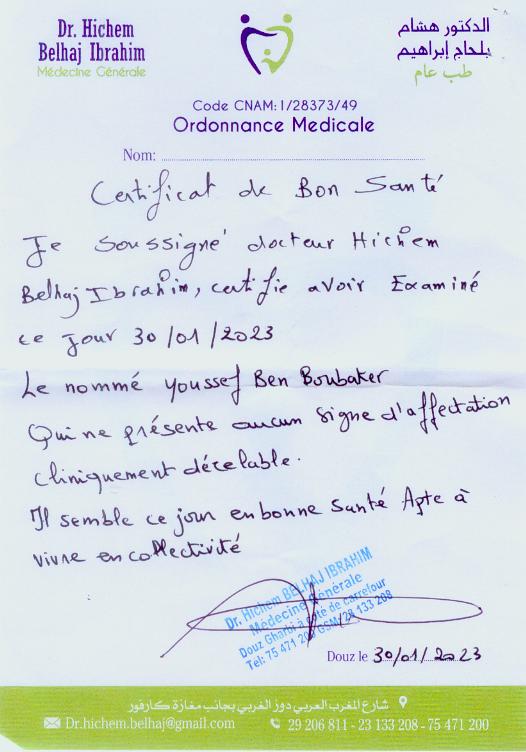 Dr. Hichem
Belhaj Ibrahim
Médecine Générale
الدكتور هشام
بلحاج إبراهيم
طب عام
Code CNAM: 1/28373/49
Ordonnance Medicale
Nom:
Certificat de Bon Santé
Je soussigné docteur Hichem
Belhaj Ibrahim, certifie avoir Examiné
ce jour 30/01/2023
Le nommé Youssef Ben Boubaker
Qui ne présente aucun signe d'affectation
cliniquement décelable.
Il semble ce jour en bonne santé Apte à
vivre en collectivité
Dr. Hichem BELHAJ IBRAHIM
Médecine Générale
Douz Gharbi à côté de Carrefour
Tel: 75 471 200 GSM: 23 133 208
Douz le 30/01/2023
شارع المغرب العربي دوز الغربي بجانب مغازة كارفور
Dr.hichem.belhaj@gmail.com
29 206 811 - 23 133 208 - 75 471 200